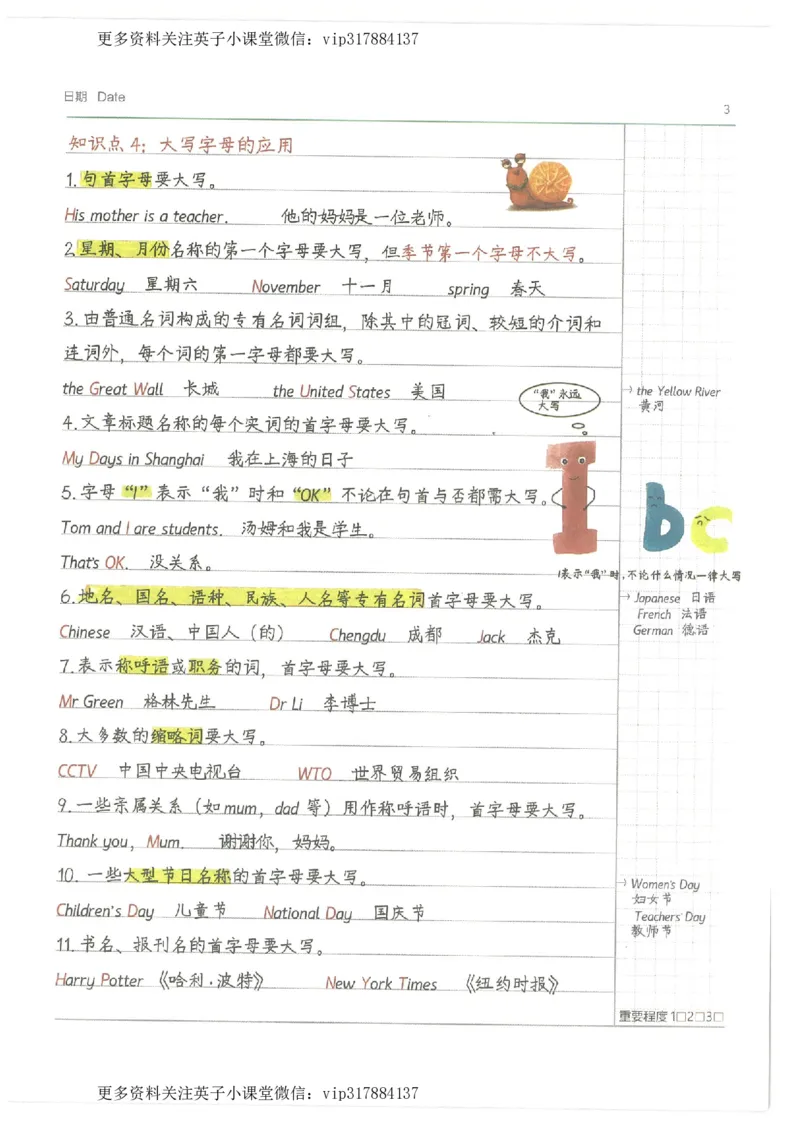 更多资料关注英子小课堂微信：vip317884137
日期 Date
3
知识点4；大写字母的应用
1.句首字母要大写。
His mother is a teacher. 他的妈妈是一位老师。
2.星期、月份名称的第一个字母要大写，但季节第一个字母不大写。
Saturday 星期六 November 十一月 spring 春天
3.由普通名词构成的专有名词词组，除其中的冠词、较短的介词和
连词外，每个词的第一字母都要大写。
the Great Wall 长城 the United States 美国
“我”永远
大写
→ the Yellow River
黄河
4.文章标题名称的每个实词的首字母要大写。
My Days in Shanghai 我在上海的日子
5.字母“I”表示“我”时和“OK”不论在句首与否都需大写。
I bc
Tom and I are students. 汤姆和我是学生。
That's OK. 没关系。
I表示“我”时，不论什么情况一律大写
6.地名、国名、语种、民族、人名等专有名词首字母要大写。
→ Japanese 日语
French 法语
German 德语
Chinese 汉语、中国人（的） Chengdu 成都 Jack 杰克
7.表示称呼语或职务的词，首字母要大写。
Mr Green 格林先生 Dr Li 李博士
8.大多数的缩略词要大写。
CCTV 中国中央电视台 WTO 世界贸易组织
9.一些亲属关系（如mum，dad等）用作称呼语时，首字母要大写。
Thank you，Mum. 谢谢你，妈妈。
10.一些大型节日名称的首字母要大写。
→ Women's Day
妇女节
Teachers' Day
教师节
Children's Day 儿童节 National Day 国庆节
11.书名、报刊名的首字母要大写。
Harry Potter 《哈利·波特》 New York Times 《纽约时报》
重要程度1□2□3□
更多资料关注英子小课堂微信：vip317884137